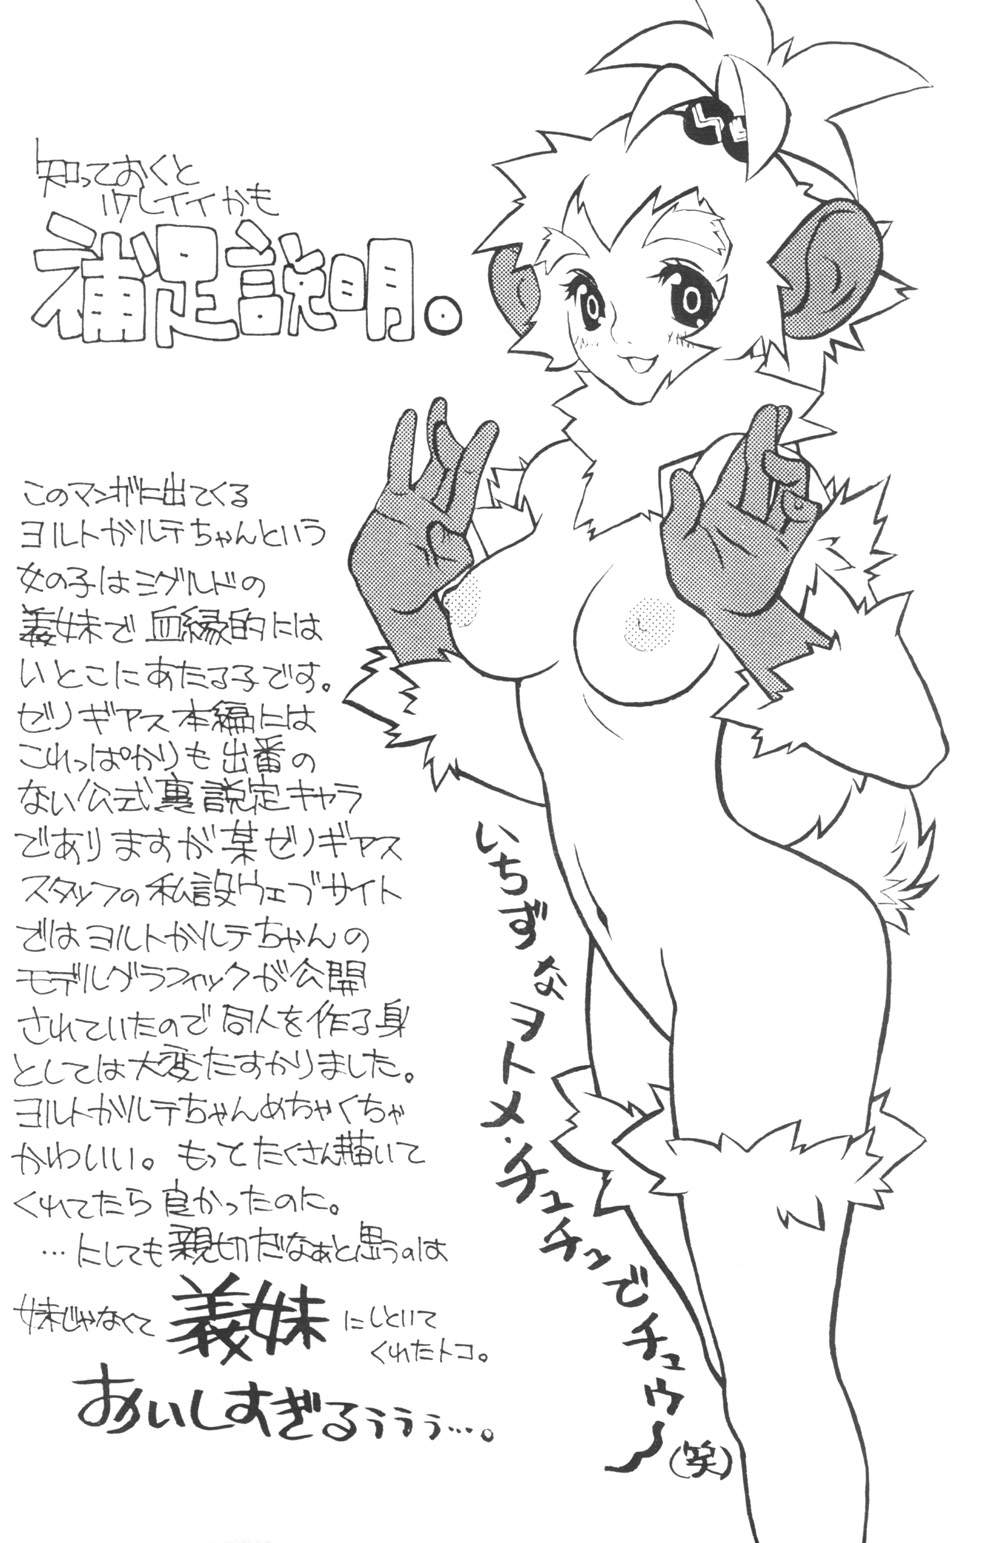 知っておくと
ウレしイイかも
補足説明。
このマンガに出てくる
ヨルトガルテちゃんという
女の子はミグルドの
義妹で血縁的には
いとこにあたる子です。
ゼノギアス本編には
これっぱかりも出番の
ない公式裏設定キャラ
でありますが某ゼノギアス
スタッフの私設ウェブサイト
ではヨルトガルテちゃんの
モデルグラフィックが公開
されていたので同人を作る身
としては大変たすかりました。
ヨルトガルテちゃんめちゃくちゃ
かわいい。もっとたくさん描いて
くれてたら良かったのに。
…にしても親切だなぁと思うのは
妹じゃなくて義妹にしといて
くれたトコ。
おいしすぎるぅぅぅ…。
いちずなヲトメ・チュチュでチュウ〜
(笑)